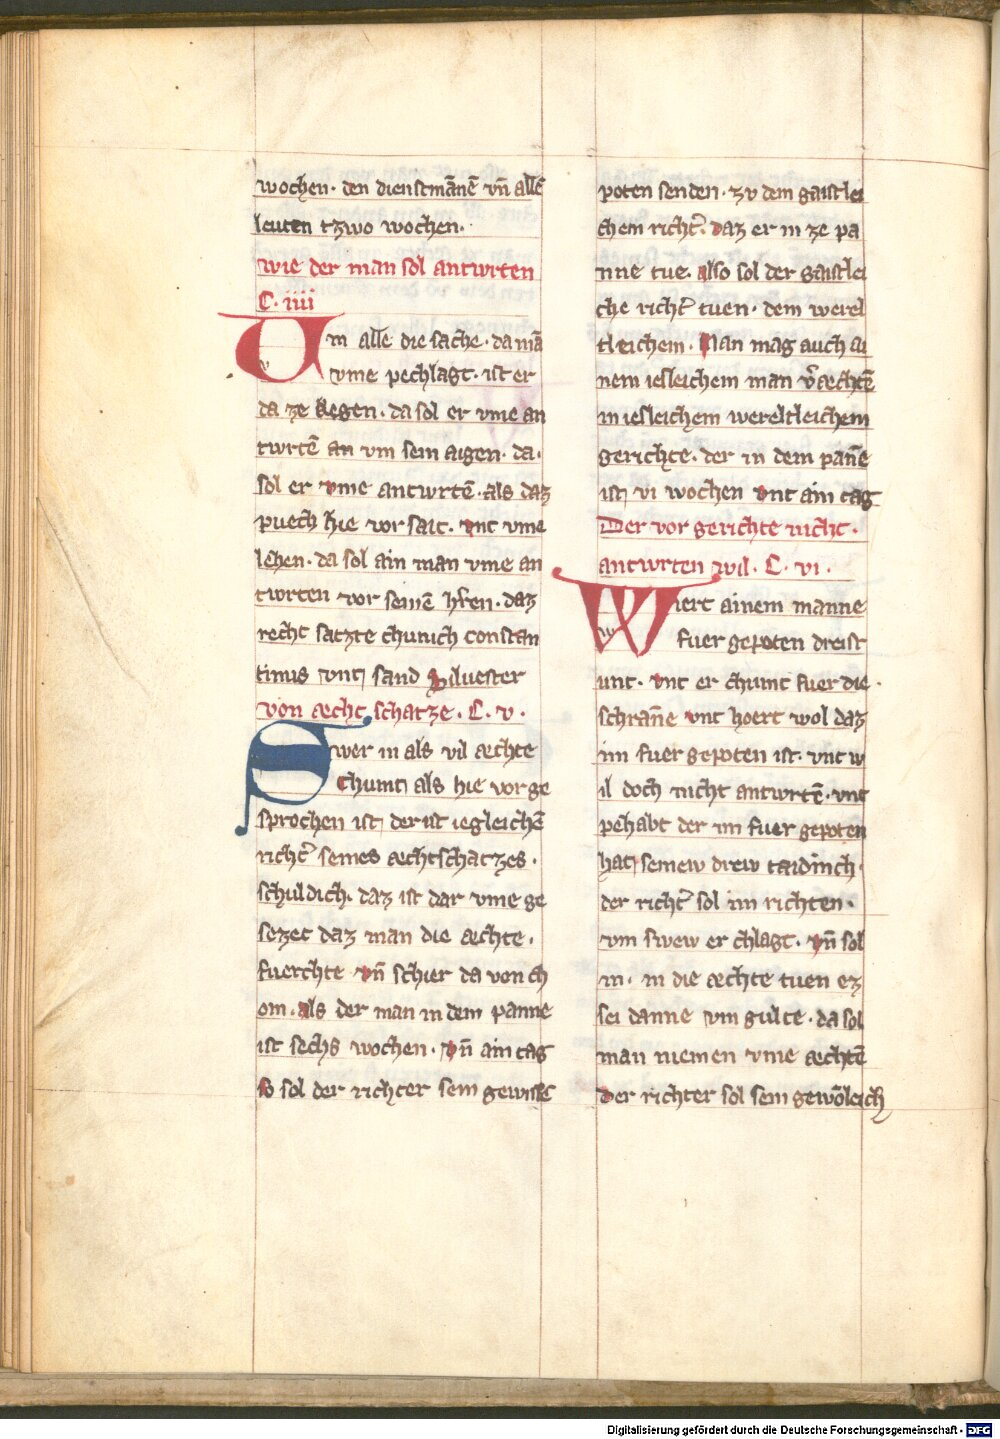 wochen· den dienstmānē vn̄ allē
leuten tzwo wochen·
wie der man sol antwrten
C· iiii
Um alle die sache· da mā
vme pechlagt· ist er
da ze kegen· da sol er vme an
twrtē an vm sein aigen· da·
sol er vme antwrtē· als daz
puech hie vor sait· vnt vme
lehen· da sol ain man vme an
twrten vor seinē hr̄en· daz
recht satzte chunich constan
tinus vnt sand Siluester
von æcht schatze· C· v·
Swer in als vil æchte
chumt als hie vor ge
sprochen ist der ist iegleichē
richt͛ seines æchtschatzes·
schuldich· daz ist dar vme ge
sezet daz man die æchte·
fuerchte vn̄ schier da von ch
om· als der man in dem panne
ist sechs wochen· vn̄ ain tag
so sol der richter sein gewisse
poten senden· zv dem gaistlei
chem richt͛· daz er in ze pa
nne tue· also sol der gaistlei
che richt͛ tuen· dem werel
tleichem· Man mag auch ai
nem iesleichem man v͛æchtē
in iesleichem wereltleichem
gerichte· der in dem pan̄e
ist vi wochen vnt ain tag
Der vor gerichte nicht·
antwrten wil· C· vi·
Wiert ainem manne
fuer gepoten dreist
unt· vnt er chumt fuer die·
schran̄e vnt hoert wol daz
im fuer gepoten ist· vnt w
il doch nicht antwrtē· vnt
pehabt der im fuer gepoten
hat seinew drew taidinch·
der richt͛ sol im richten·
vm swew er chlagt· vn̄ sol
in· in die æchte tuen ez
sei danne vm gulte· da sol
man niemen vme æchtē
der richter sol sein gewōleich